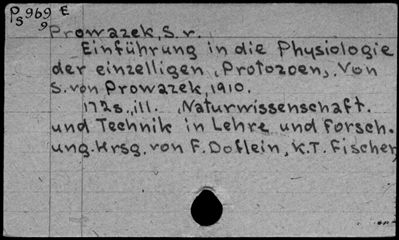 P 969 E
S 9
Prowazek, S. v.
Einführung in die Physiologie
der einzelligen, Protozoen,. Von
S. von Prowazek, 1910.
172 s., ill. ,Naturwissenschaft.
und Technik in Lehre und Forsch.
ung. Hrsg. von F. Doflein, K.T. Fischer,